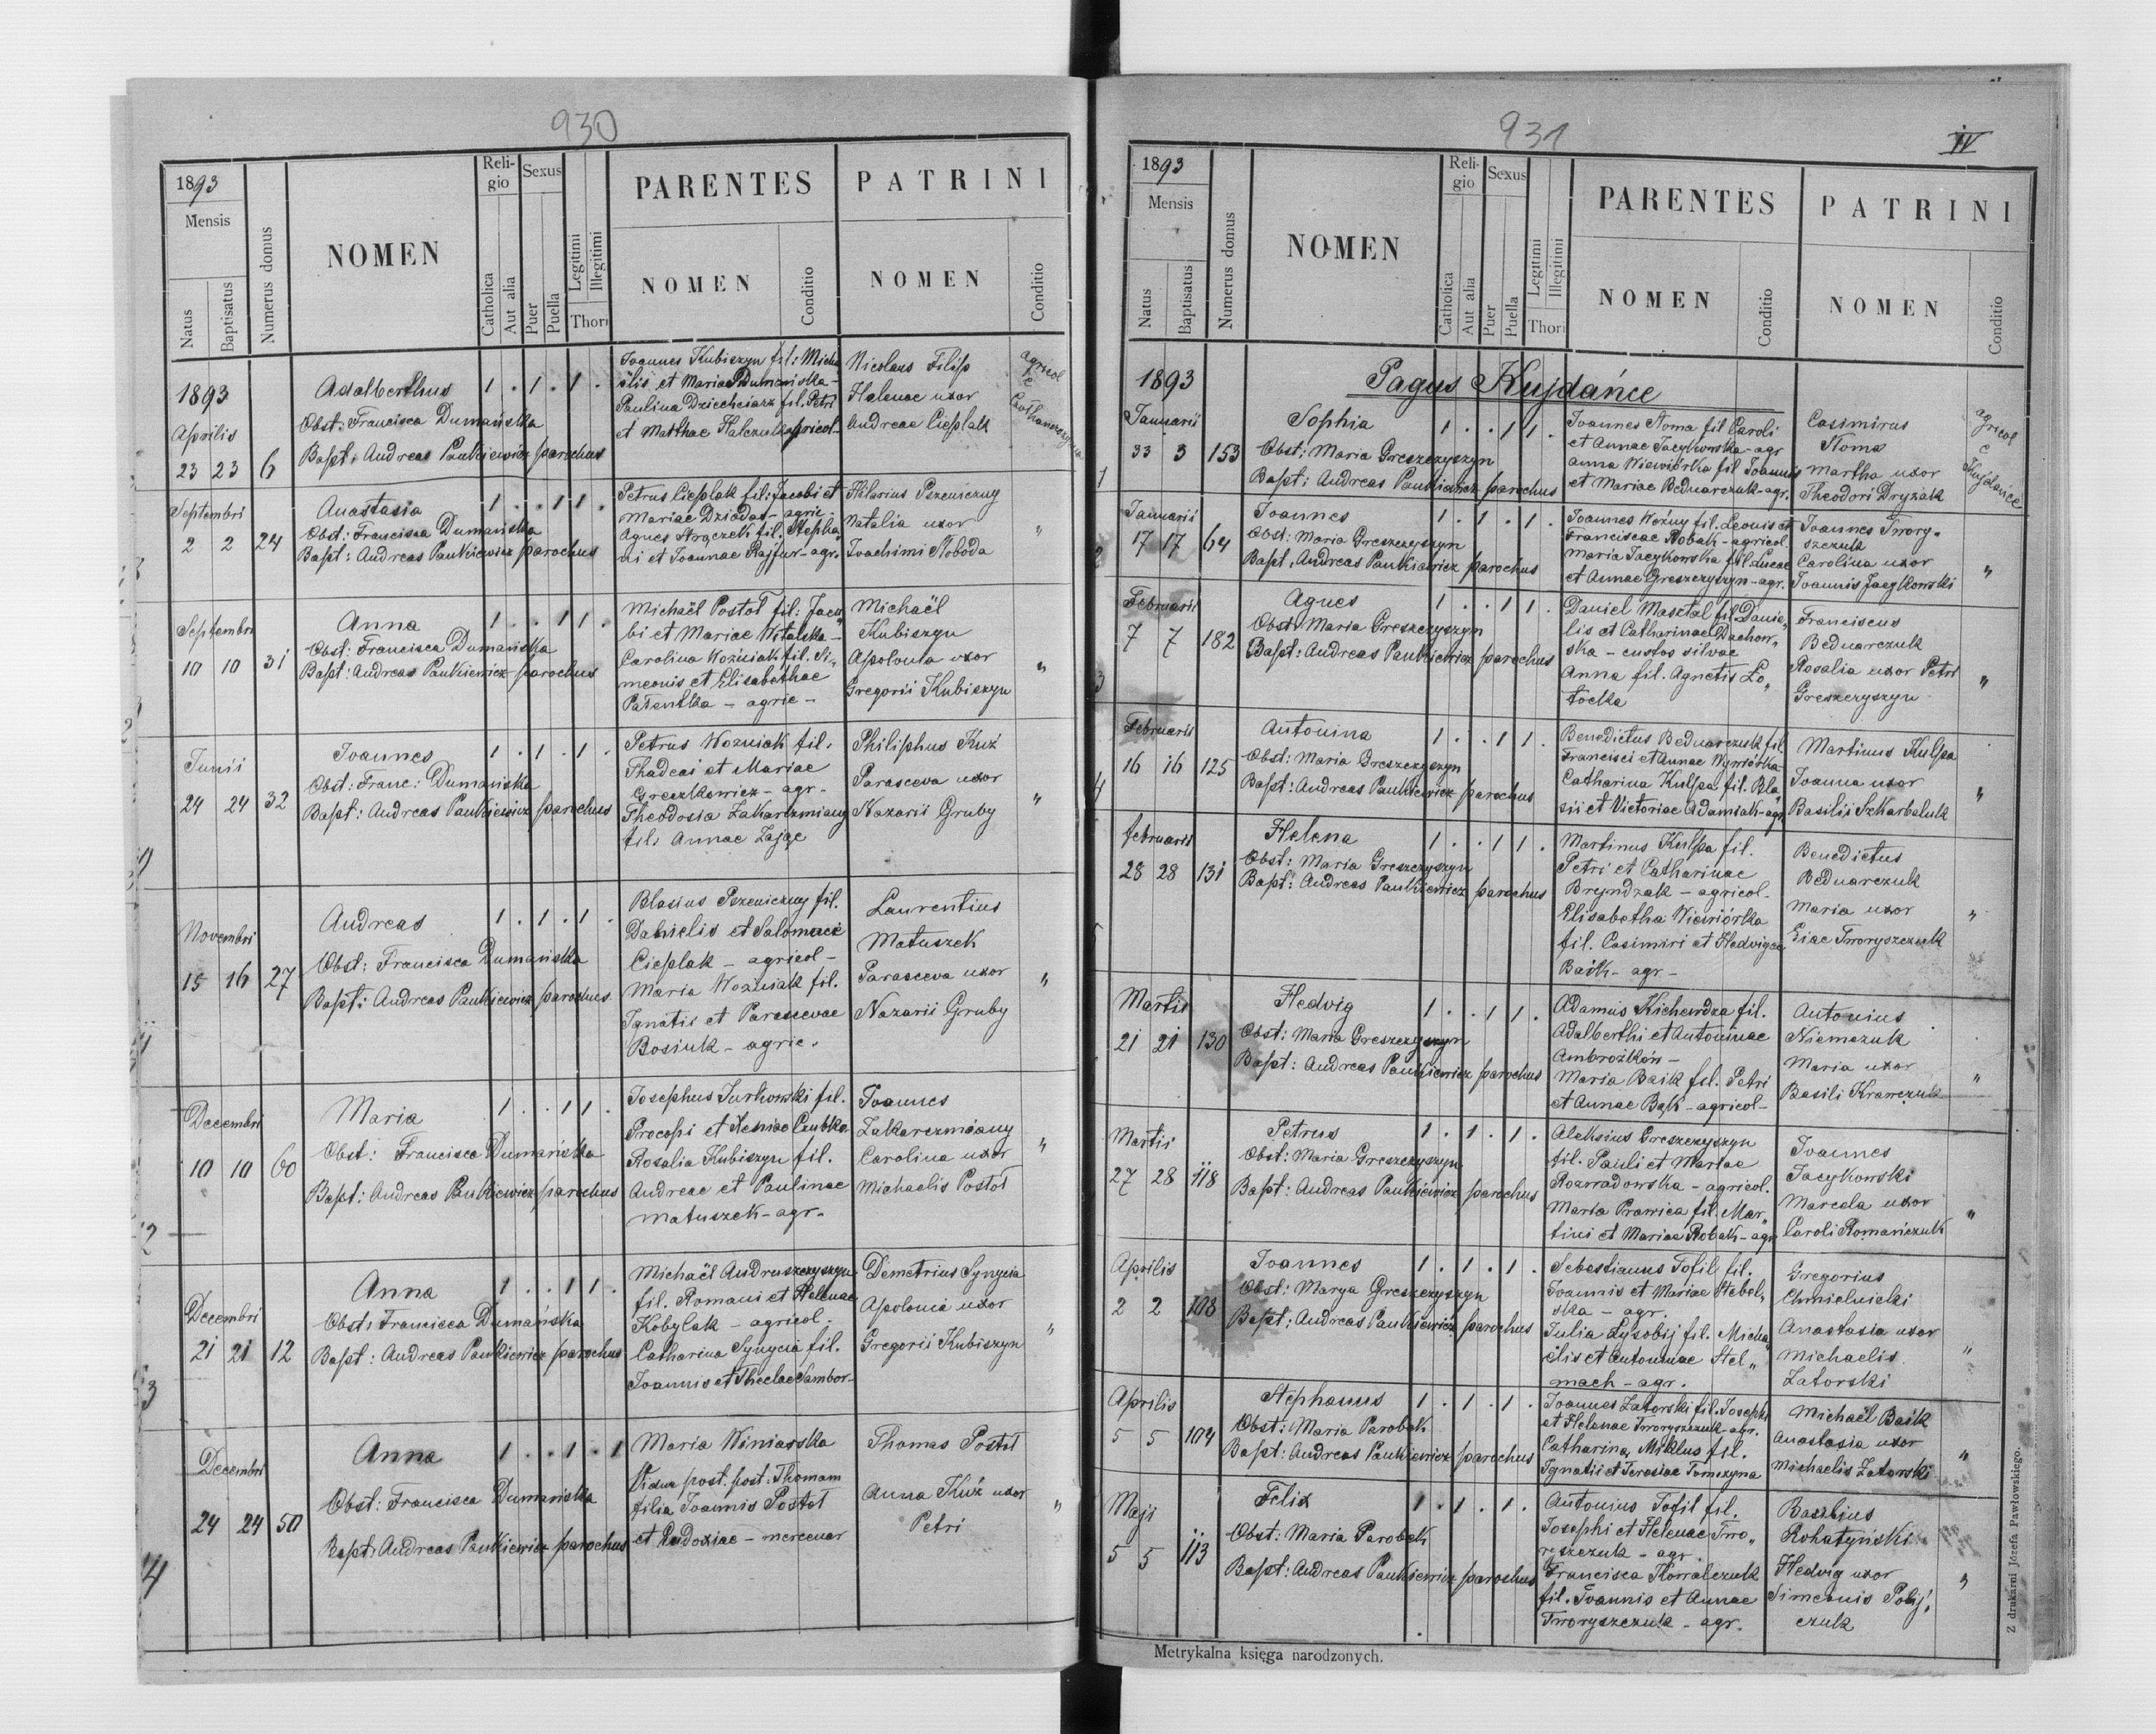 930
1893
Mensis
Natus
Baptisatus
Numerus domus
NOMEN
Religio
Catholica
Aut alia
Sexus
Puer
Puella
Legitimi
Illegitimi
Thori
PARENTES
NOMEN
Conditio
PATRINI
NOMEN
Conditio
1893
Aprilis
23 23 6
Adalberthus
Obst: Francisca Dumańska
Bapt: Andreas Pankiewicz parochus
1 . 1 . 1 .
Joannes Kubiszyn fil: Micha
ëlis et Mariae Dumańska -
Paulina Dziechciarz fil. Petri
et Matthae Halczuk agricol-
Nicolaus Filip
Helenae uxor
Andreae Cieplak
agricol
Septembri
2 2 24
Anastasia
Obst: Francisca Dumańska
Bapt: Andreas Pankiewicz parochus
1 . . 1 1 .
Petrus Cieplak fil: Jacobi et
Mariae Dziadas - agric -
Agnes Strączek fil. Stepha
ni et Joannae Rajfur - agr.
Hilarius Pszeniczny
Natalia uxor
Joachimi Sloboda
"
Septembri
10 10 31
Anna
Obst: Francisca Dumańska
Bapt: Andreas Pankiewicz parochus
1 . . 1 1 .
Michaël Postoł fil: Jaco
bi et Mariae Witalska -
Carolina Woźniak fil. Si„
meonis et Elisabethae
Patentka - agric -
Michaël
Kubiszyn
Apolonia uxor
Gregorii Kubiszyn
"
Junii
24 24 32
Joannes
Obst: Franc: Dumańska
Bapt: Andreas Pankiewicz parochus
1 . 1 . 1 .
Petrus Woźniak fil.
Thadeai et Mariae
Greczkowicz - agr -
Theodosia Zakarczmiany
fil. Annae Zając
Philiphus Kuź
Parasceva uxor
Nazarii Gruby
"
Novembri
15 16 27
Andreas
Obst: Francisca Dumańska
Bapt: Andreas Pankiewicz parochus
1 . 1 . 1 .
Blasius Pszeniczny fil.
Danielis et Salomeae
Cieplak - agricol -
Maria Woźniak fil.
Ignatii et Parascevae
Bosiuk - agric.
Laurentius
Matuszek
Parasceva uxor
Nazarii Gruby
"
Decembri
10 10 60
Maria
Obst: Francisca Dumańska
Bapt: Andreas Pankiewicz parochus
1 . . 1 1 .
Josephus Jurkowski fil.
Procopi et Xeniae Czubka
Rosalia Kubiszyn fil.
Andreae et Paulinae
Matuszek - agr.
Joannes
Zakarczmiany
Carolina uxor
Michaelis Postoł
"
Decembri
21 21 12
Anna
Obst: Francisca Dumańska
Bapt: Andreas Pankiewicz parochus
1 . . 1 1 .
Michaël Andruszczyszyn
fil. Romani et Helenae
Kobylak - agricol.
Catharina Synycia fil.
Joannis et Theclae Sambor-
Demetrius Synycia
Apolonia uxor
Gregorii Kubiszyn
"
Decembri
24 24 50
Anna
Obst: Francisca Dumańska
Bapt: Andreas Pankiewicz parochus
1 . . 1 . 1
Maria Winiarska
Vidua post. post: Thomam
filia Joannis Postoł
et Eudoxiae - mercenar
Thomas Postoł
Anna Kuź uxor
Petri
"
931
IV
1893
Mensis
Natus
Baptisatus
Numerus domus
NOMEN
Religio
Catholica
Aut alia
Sexus
Puer
Puella
Legitimi
Illegitimi
Thori
PARENTES
NOMEN
Conditio
PATRINI
NOMEN
Conditio
1893
Pagus Kujdańce
Januarii
33 3 153
Sophia
Obst: Maria Greszczyszyn
Bapt: Andreas Pankiewicz parochus
1 . . 1 1 .
Joannes Słoma fil Caroli
et Annae Jacykowska - agr
Anna Wiewiórka fil Joannis
et Mariae Bednarczuk - agr.
Casimirus
Słoma
Martha uxor
Theodori Dryżak
agricol
e
Kujdańce
Januarii
17 17 64
Joannes
Obst: Maria Greszczyszyn
Bapt: Andreas Pankiewicz parochus
1 . 1 . 1 .
Joannes Woźny fil. Leonis et
Franciscae Robak - agricol.
Maria Jacykowska fil. Lucae
et Annae Greszczyszyn - agr.
Joannes Twory„
szczuk
Carolina uxor
Joannis Jacykowski
"
Februarii
7 7 182
Agnes
Obst: Maria Greszczyszyn
Bapt: Andreas Pankiewicz parochus
1 . . 1 1 .
Daniel Masztal fil. Danie„
lis et Catharinae Dachow„
ska - custos silvae
Anna fil. Agnetis Ło„
tocka
Franciscus
Bednarczuk
Rosalia uxor Petri
Greszczyszyn
"
Februarii
16 16 125
Antonina
Obst: Maria Greszczyszyn
Bapt: Andreas Pankiewicz parochus
1 . . 1 1 .
Benedictus Bednarczuk fil.
Francisci et Annae Wywiórka
Catharina Kulpa fil. Bla„
sii et Victoriae Adamiak - agr
Martinus Kulpa
Joanna uxor
Basilii Szkarbaluk
"
februarii
28 28 131
Helena
Obst: Maria Greszczyszyn
Bapt: Andreas Pankiewicz parochus
1 . . 1 1 .
Martinus Kulpa fil.
Petri et Catharinae
Bryndzak - agricol -
Elisabetha Wiewiórka
fil. Casimiri et Hedvigae
Baik - agr -
Benedictus
Bednarczuk
Maria uxor
Eiae Tworyszczuk
"
Martii
21 21 130
Hedvig
Obst: Maria Greszczyszyn
Bapt: Andreas Pankiewicz parochus
1 . . 1 1 .
Adamus Kicherdza fil.
Adalberthi et Antoninae
Ambrożków -
Maria Baik fil. Petri
et Annae Bąk - agricol -
Antonius
Niemczuk
Maria uxor
Basili Krawczuk
"
Martii
27 28 118
Petrus
Obst: Maria Greszczyszyn
Bapt: Andreas Pankiewicz parochus
1 . 1 . 1 .
Aleksius Greszczyszyn
fil. Pauli et Mariae
Rozwadowska - agricol.
Maria Prawica fil. Mar„
tini et Mariae Robak - agr
Joannes
Jacykowski
Marcela uxor
Caroli Romańczuk
"
Aprilis
2 2 108
Joannes
Obst: Marya Greszczyszyn
Bapt: Andreas Pankiewicz parochus
1 . 1 . 1 .
Sebestianus Tofil fil.
Joannis et Mariae Stebel„
ska - agr.
Julia Łysobij fil. Micha„
ëlis et Antoninae Stel„
mach - agr.
Gregorius
Chmielnicki
Anastasia uxor
Michaelis
Zatorski
"
Aprilis
5 5 104
Stephanus
Obst: Maria Parobek
Bapt: Andreas Pankiewicz parochus
1 . 1 . 1 .
Joannes Zatorski fil. Josephi
et Helenae Tworyszczuk - agr.
Catharina Miklus fil.
Ignatii et Teresiae Tomczyna
Michaël Baik
Anastasia uxor
Michaelis Zatorski
"
Maji
5 5 113
Felix
Obst: Maria Parobek
Bapt: Andreas Pankiewicz parochus
1 . 1 . 1 .
Antonius Tofil fil.
Josephi et Helenae Two„
ryszczuk - agr.
Francisca Kowalczuk
fil. Joannis et Annae
Tworyszczuk - agr.
Basilius
Rohatyński
Hedvig uxor
Simeonis Polij„
czuk
"
Metrykalna księga narodzonych.
Z drukarni Józefa Pawłowskiego.